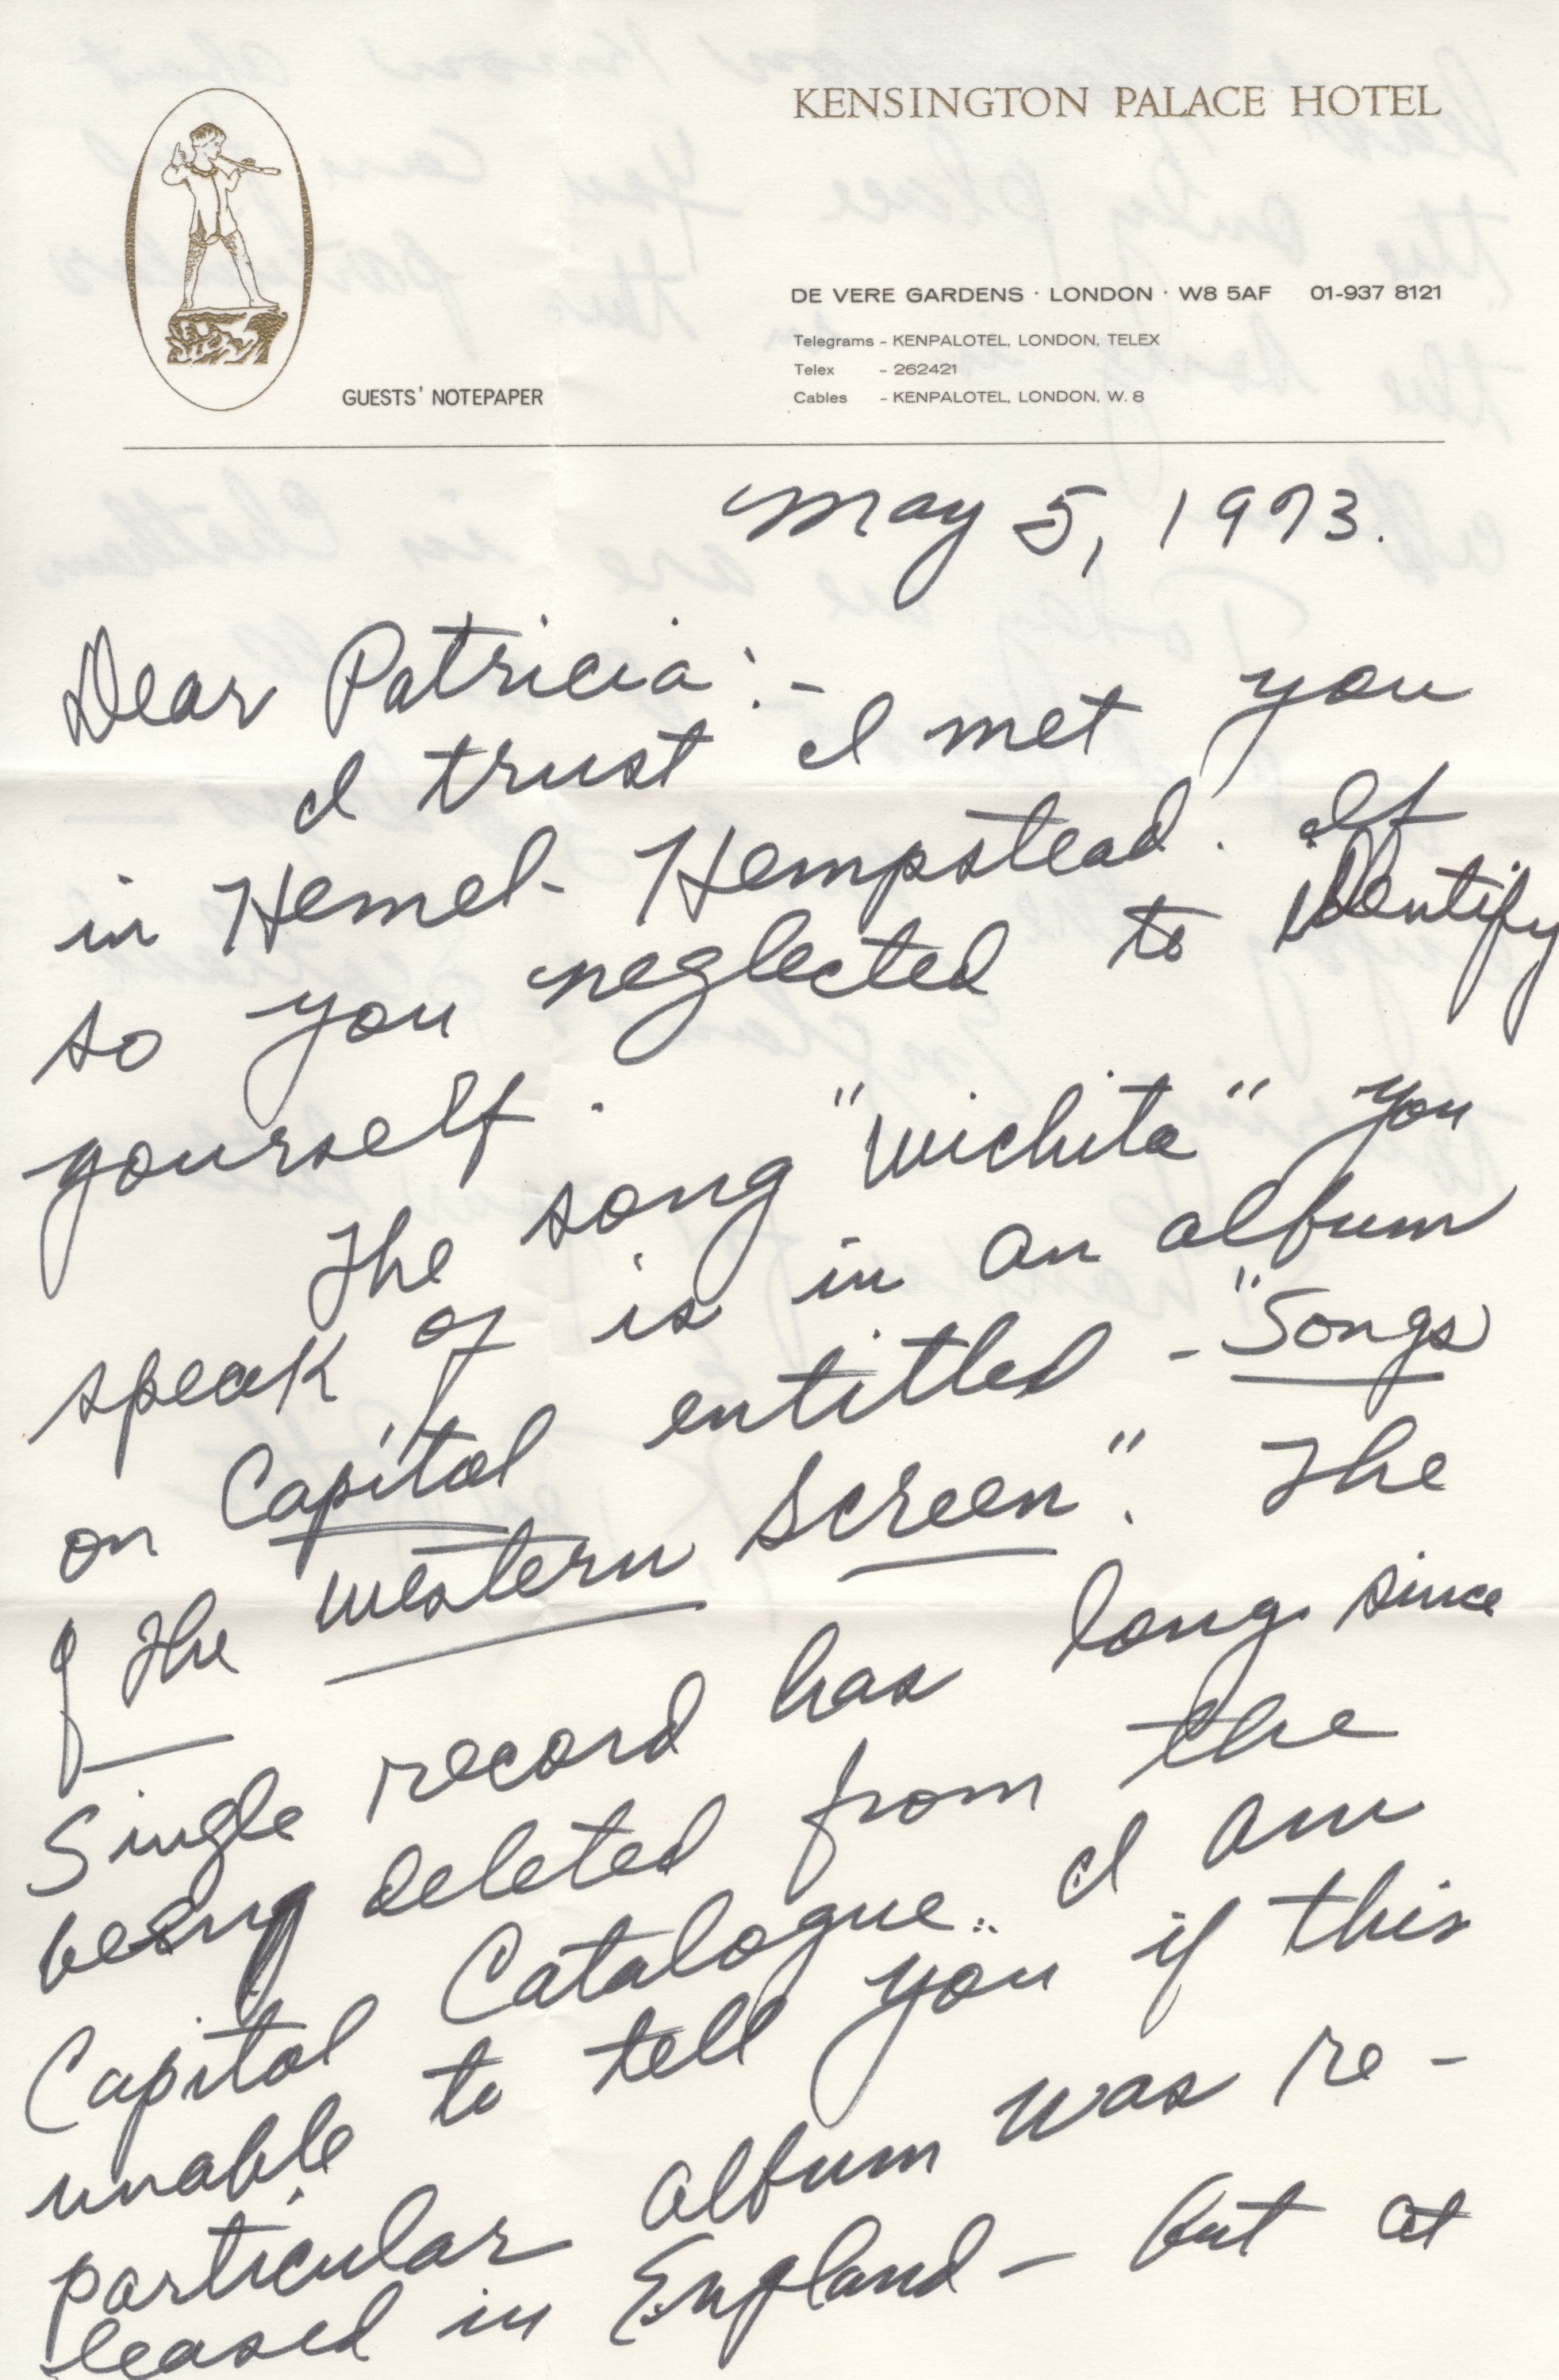 KENSINGTON PALACE HOTEL
DE VERE GARDENS · LONDON · W8 5AF 01-937 8121
Telegrams - KENPALOTEL, LONDON, TELEX
Telex - 262421
Cables - KENPALOTEL, LONDON, W. 8
GUESTS' NOTEPAPER
May 5, 1973.
Dear Patricia:-
I trust I met you
in Hemel-Hempstead. If
so you neglected to identify
yourself.
The song "Wichita" you
speak of is in an album
on Capitol entitled - "Songs
of the Western Screen". The
Single record has long since
being deleted from the
Capitol Catalogue.. I am
unable to tell you if this
particular album was re-
leased in England - but at